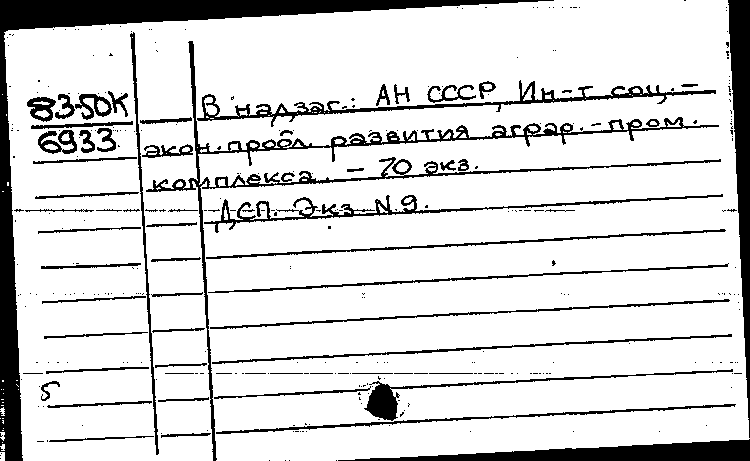 83-50К
6933
В надзаг.: АН СССР, Ин-т соц.-
экон. пробл. развития аграр.-пром.
комплекса. - 70 экз.
ДСП. Экз N 9.
5